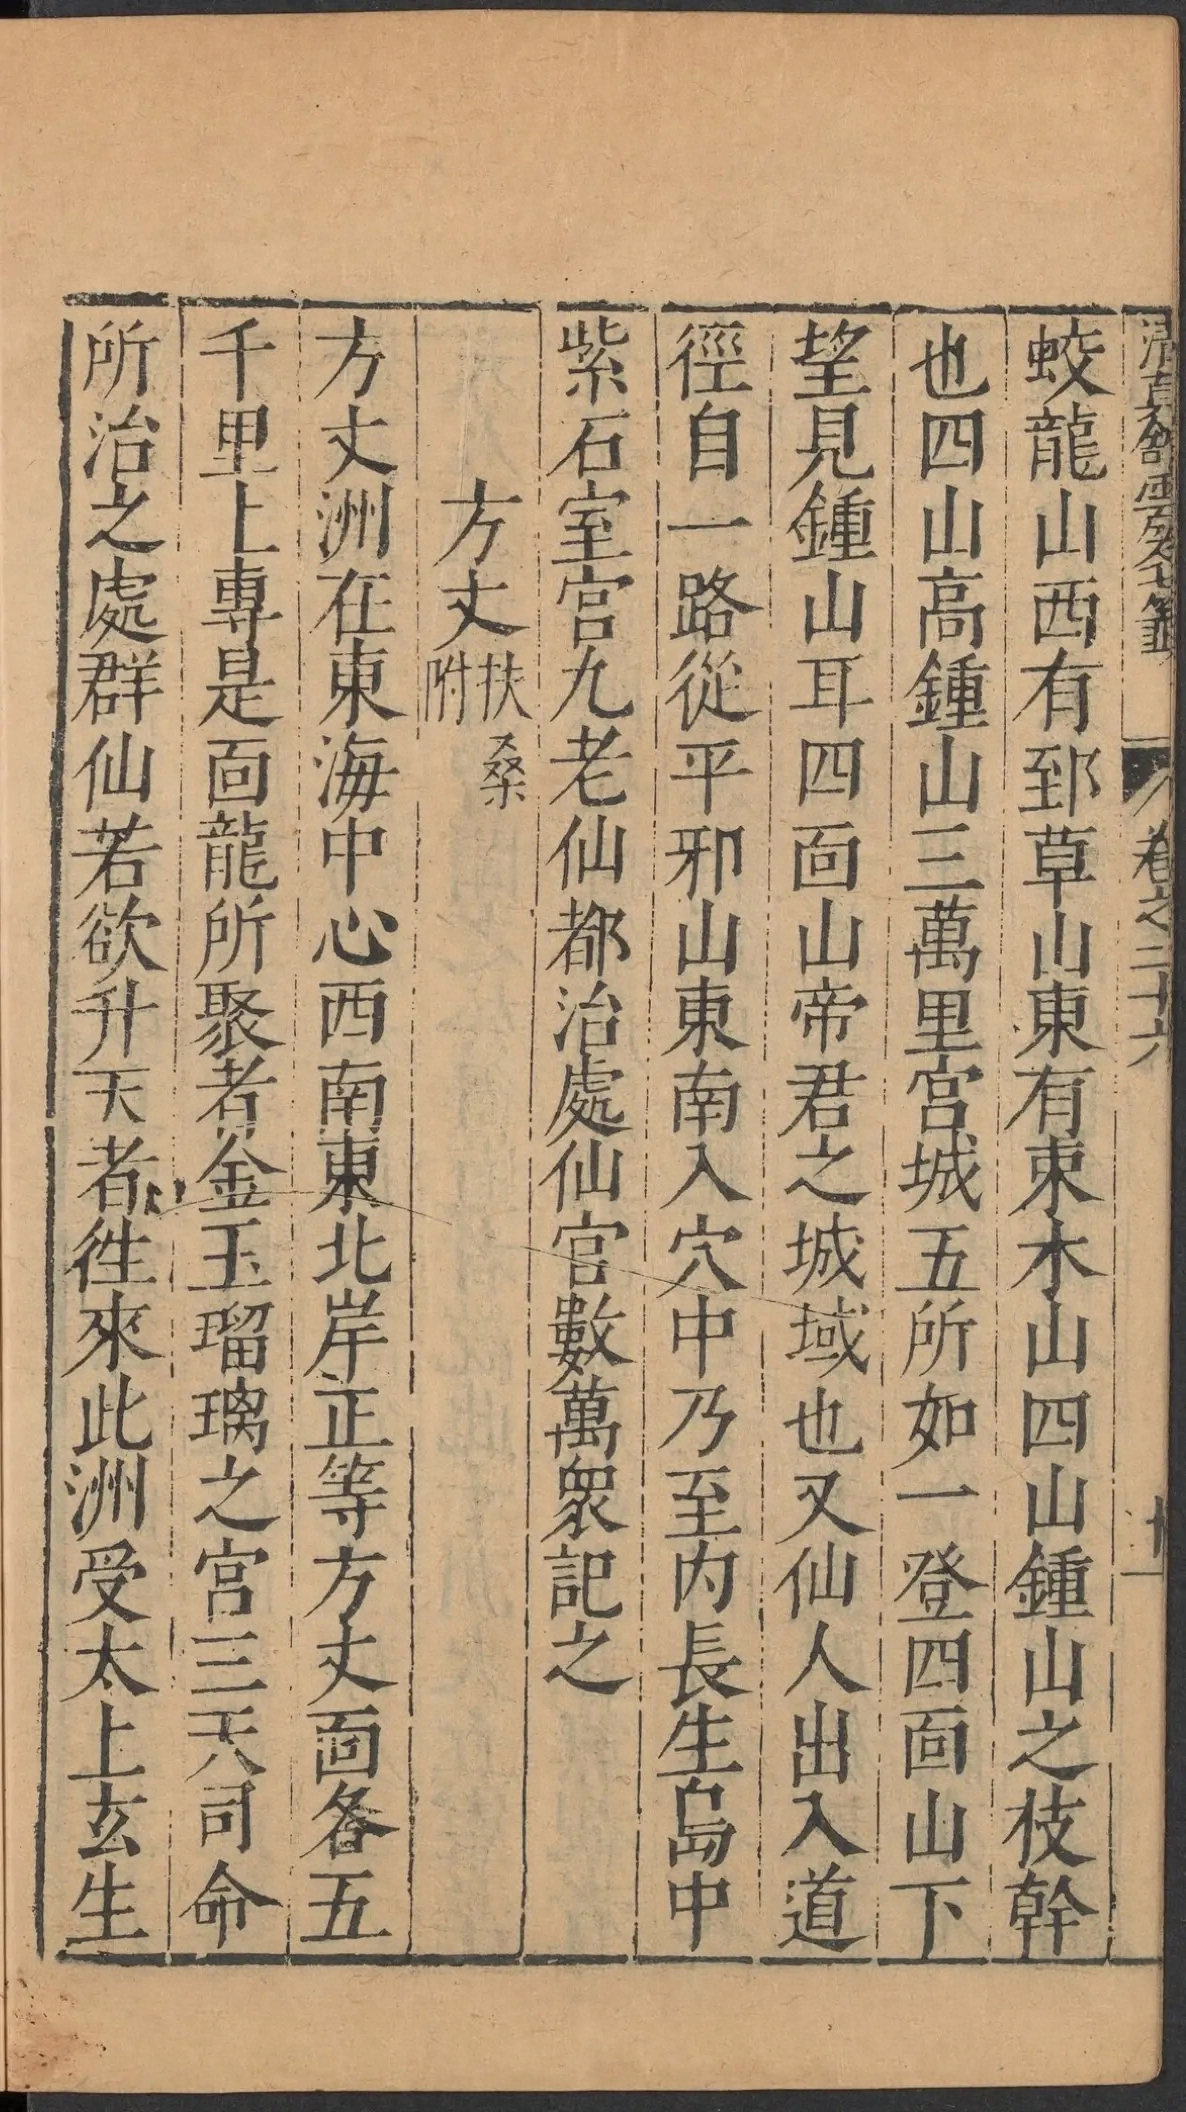 清真館雲笈七籤
卷之二十六
十一
蛟龍山西有郅草山東有東木山四山鍾山之枝幹
也四山高鍾山三萬里宫城五所如一登四靣山下
望見鍾山耳四靣山帝君之城域也又仙人出入道
徑自一路從平邪山東南入穴中乃至内長生島中
紫石室宫九老仙都治處仙官數萬衆記之
方丈扶桑附
方丈洲在東海中心西南東北岸正等方丈靣各五
千里上專是靣龍所聚者金玉瑠璃之宫三天司命
所治之處群仙若欲升天者徃來此洲受太上玄生